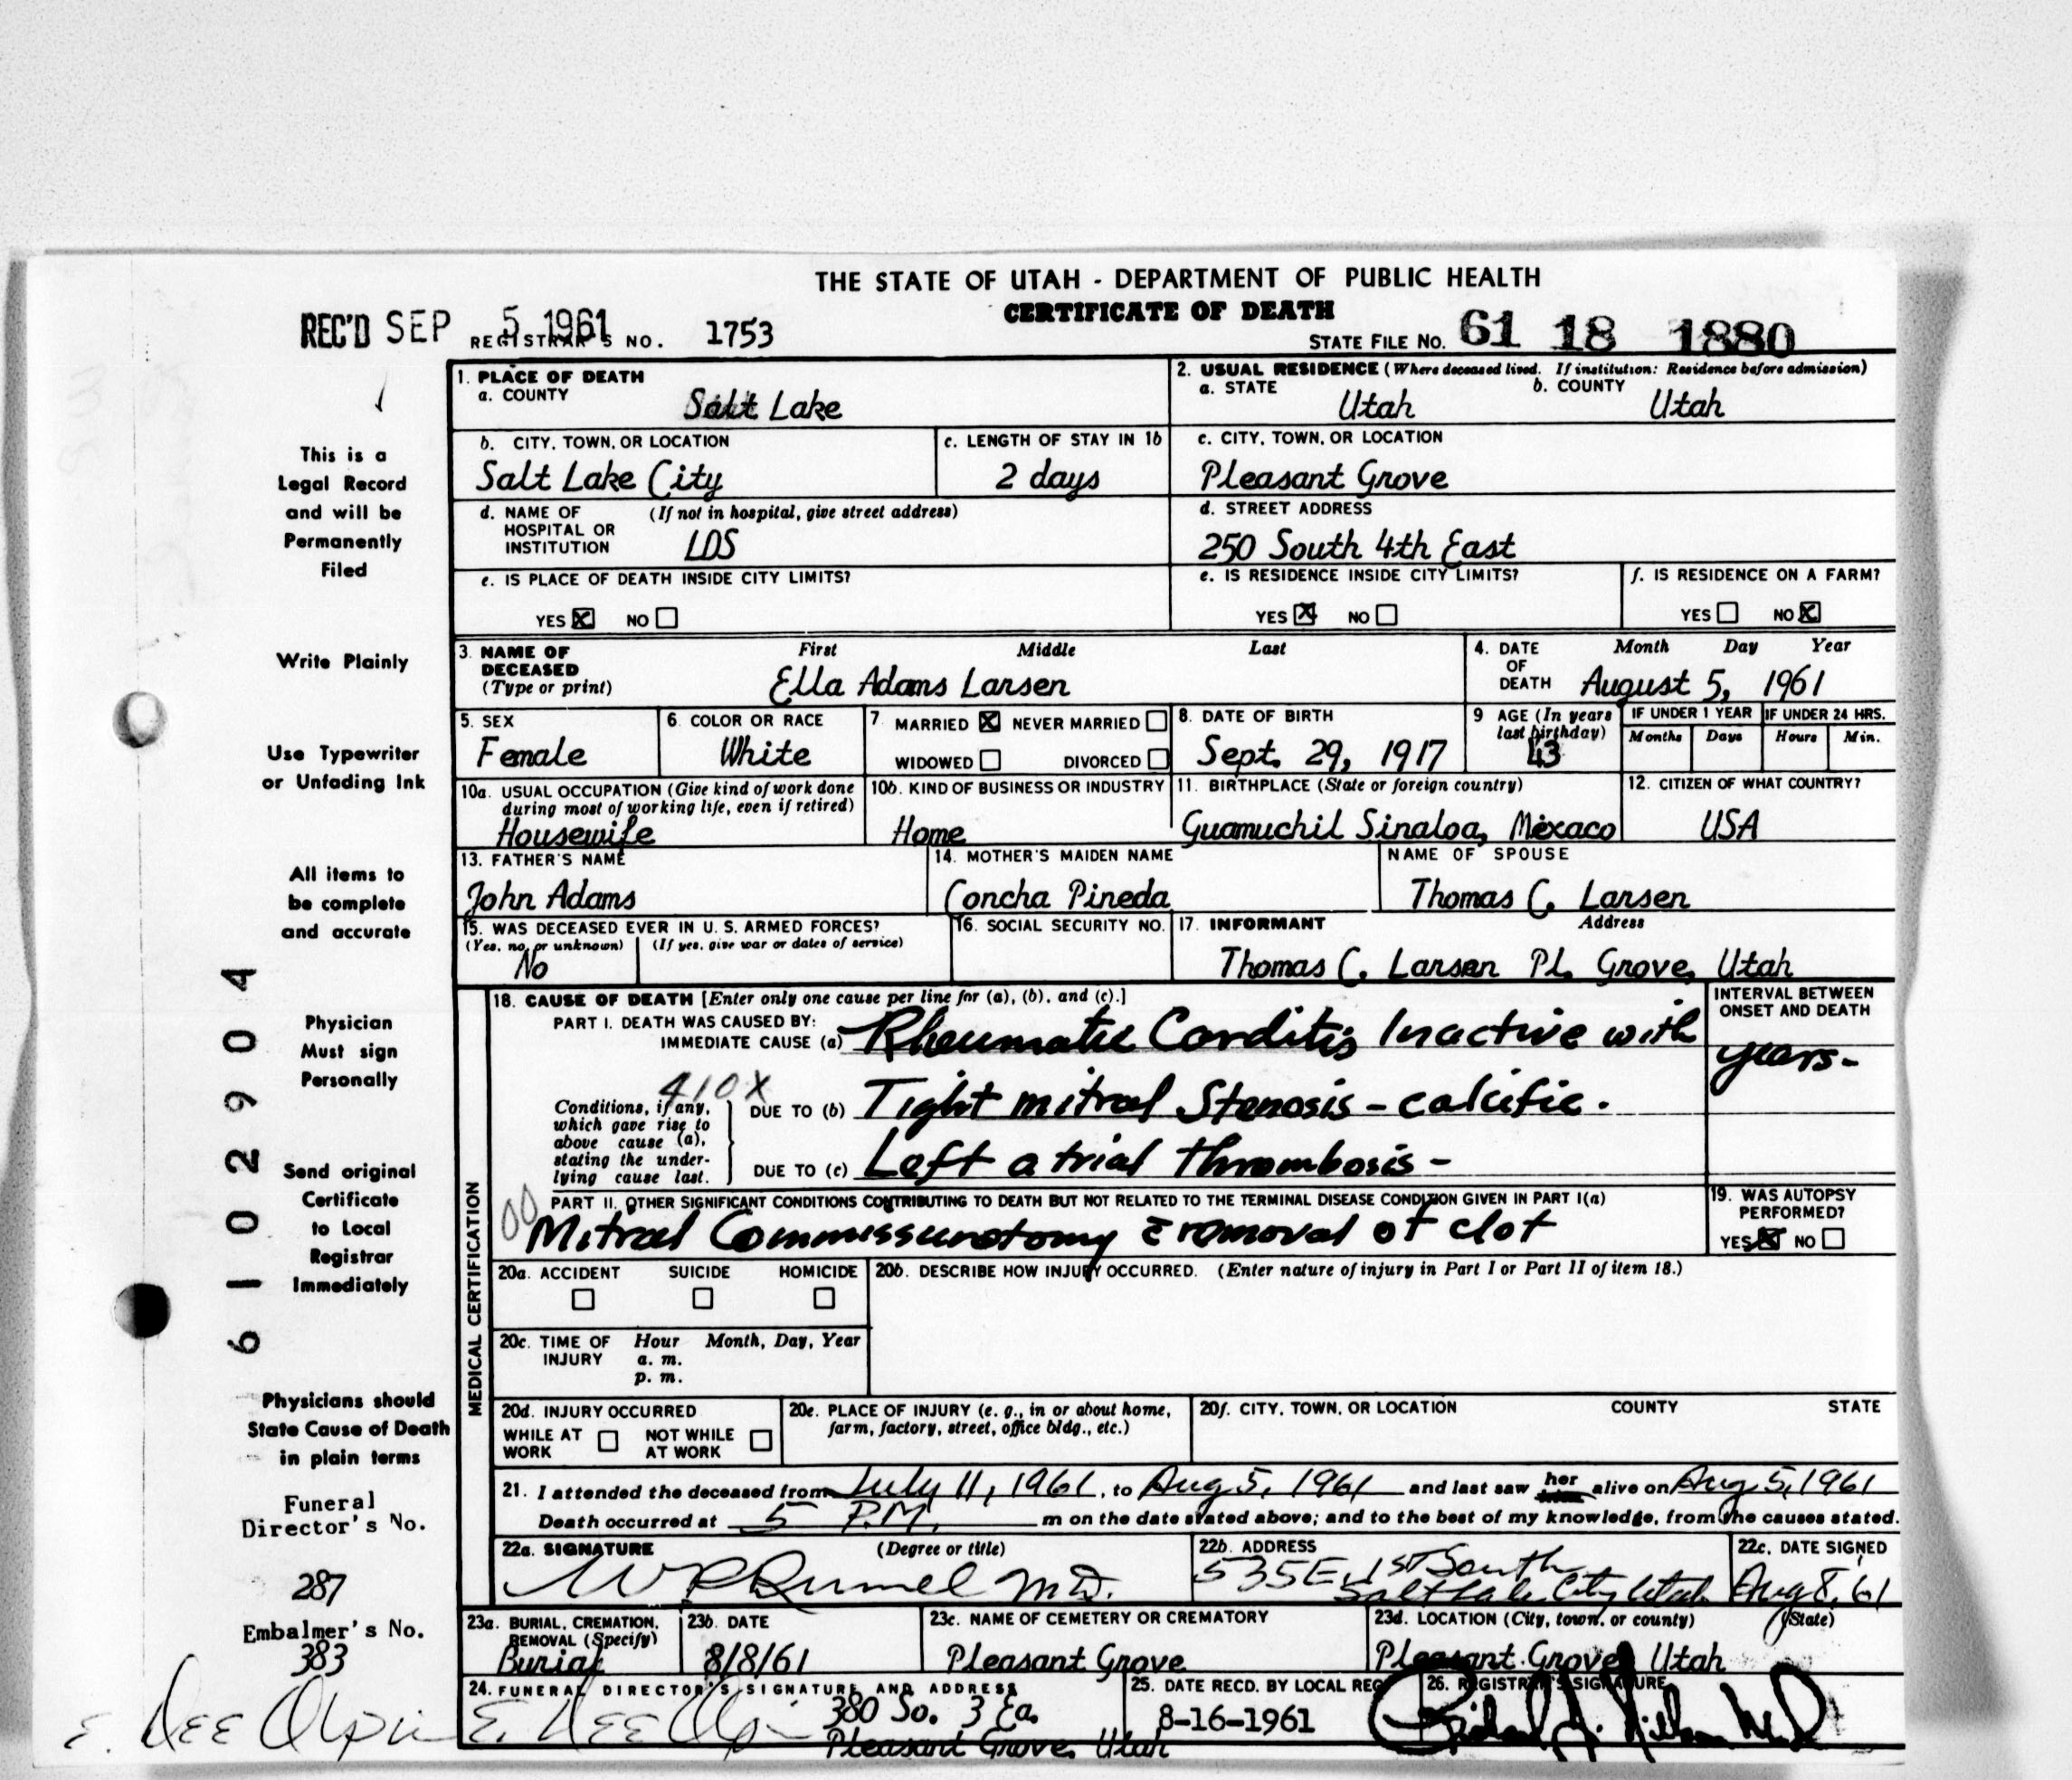 THE STATE OF UTAH - DEPARTMENT OF PUBLIC HEALTH
CERTIFICATE OF DEATH
REC'D SEP 5 1961 REGISTRAR'S NO. 1753 STATE FILE NO. 61 18 1880
1. PLACE OF DEATH
a. COUNTY
Salt Lake
2. USUAL RESIDENCE (Where deceased lived. If institution: Residence before admission)
a. STATE b. COUNTY
Utah Utah
b. CITY, TOWN, OR LOCATION
Salt Lake City
c. LENGTH OF STAY IN 1b
2 days
c. CITY, TOWN, OR LOCATION
Pleasant Grove
d. NAME OF (If not in hospital, give street address)
HOSPITAL OR
INSTITUTION LDS
d. STREET ADDRESS
250 South 4th East
e. IS PLACE OF DEATH INSIDE CITY LIMITS?
YES NO
e. IS RESIDENCE INSIDE CITY LIMITS?
YES NO
f. IS RESIDENCE ON A FARM?
YES NO
3. NAME OF First Middle Last
DECEASED
(Type or print) Ella Adams Larsen
4. DATE Month Day Year
OF
DEATH August 5, 1961
5. SEX
Female
6. COLOR OR RACE
White
7 MARRIED NEVER MARRIED
WIDOWED DIVORCED
8. DATE OF BIRTH
Sept. 29, 1917
9 AGE (In years
last birthday)
43
IF UNDER 1 YEAR
Months Days
IF UNDER 24 HRS.
Hours Min.
10a. USUAL OCCUPATION (Give kind of work done
during most of working life, even if retired)
Housewife
10b. KIND OF BUSINESS OR INDUSTRY
Home
11. BIRTHPLACE (State or foreign country)
Guamuchil Sinaloa, Mexaco
12. CITIZEN OF WHAT COUNTRY?
USA
13. FATHER'S NAME
John Adams
14. MOTHER'S MAIDEN NAME
Concha Pineda
NAME OF SPOUSE
Thomas C. Larsen
15. WAS DECEASED EVER IN U. S. ARMED FORCES?
(Yes, no, or unknown) (If yes, give war or dates of service)
No
16. SOCIAL SECURITY NO.
17. INFORMANT Address
Thomas C. Larsen Pl. Grove, Utah
MEDICAL CERTIFICATION
18. CAUSE OF DEATH [Enter only one cause per line for (a), (b), and (c).]
PART I. DEATH WAS CAUSED BY:
IMMEDIATE CAUSE (a) Rheumatic Carditis Inactive with
INTERVAL BETWEEN
ONSET AND DEATH
years-
410X
Conditions, if any,
which gave rise to
above cause (a),
stating the under-
lying cause last.
DUE TO (b) Tight mitral Stenosis - calcific.
DUE TO (c) Left atrial thrombosis -
00
PART II. OTHER SIGNIFICANT CONDITIONS CONTRIBUTING TO DEATH BUT NOT RELATED TO THE TERMINAL DISEASE CONDITION GIVEN IN PART I(a)
Mitral Commissurotomy c̄ removal of clot
19. WAS AUTOPSY
PERFORMED?
YES NO
20a. ACCIDENT SUICIDE HOMICIDE
20b. DESCRIBE HOW INJURY OCCURRED. (Enter nature of injury in Part I or Part II of item 18.)
20c. TIME OF Hour Month, Day, Year
INJURY a. m.
p. m.
20d. INJURY OCCURRED
WHILE AT NOT WHILE
WORK AT WORK
20e. PLACE OF INJURY (e. g., in or about home,
farm, factory, street, office bldg., etc.)
20f. CITY, TOWN, OR LOCATION COUNTY STATE
21. I attended the deceased from July 11, 1961, to Aug 5, 1961 and last saw her alive on Aug 5, 1961
Death occurred at 5 P.M. m on the date stated above; and to the best of my knowledge, from the causes stated.
22a. SIGNATURE (Degree or title)
W P Rumel M.D.
22b. ADDRESS
535 E. 1st South
Salt Lake City Utah
22c. DATE SIGNED
Aug 8, '61
23a. BURIAL, CREMATION,
REMOVAL (Specify)
Burial
23b. DATE
8/8/61
23c. NAME OF CEMETERY OR CREMATORY
Pleasant Grove
23d. LOCATION (City, town, or county) (State)
Pleasant Grove, Utah
24. FUNERAL DIRECTOR'S SIGNATURE AND ADDRESS
380 So. 3 Ea.
Pleasant Grove, Utah
25. DATE RECD. BY LOCAL REG.
8-16-1961
26. REGISTRAR'S SIGNATURE
This is a
Legal Record
and will be
Permanently
Filed
Write Plainly
Use Typewriter
or Unfading Ink
All items to
be complete
and accurate
Physician
Must sign
Personally
Send original
Certificate
to Local
Registrar
Immediately
Physicians should
State Cause of Death
in plain terms
Funeral
Director's No.
287
Embalmer's No.
383
61 02904